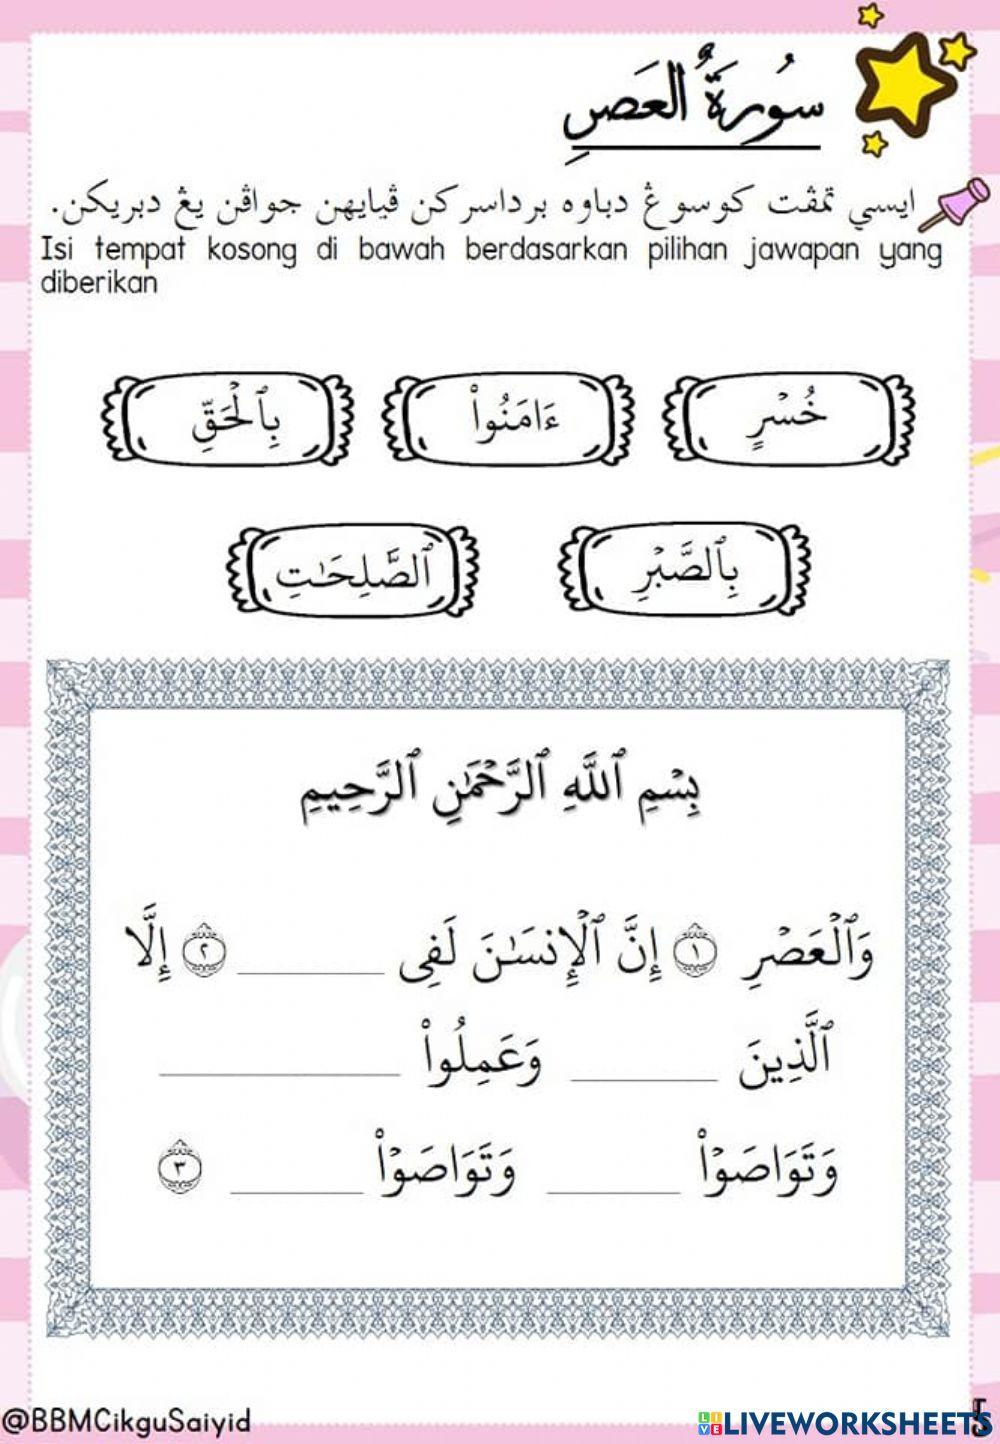 سُورَةُ العَصرِ
ايسي تمڤت كوسوڠ دباوه برداسركن ڤيليهن جواڤن يڠ دبريكن.
Isi tempat kosong di bawah berdasarkan pilihan jawapan yang
diberikan
خُسۡرٍ ءَامَنُواْ بِٱلۡحَقِّ
بِٱلصَّبۡرِ ٱلصَّٰلِحَٰتِ
بِسۡمِ ٱللَّهِ ٱلرَّحۡمَٰنِ ٱلرَّحِيمِ
وَٱلۡعَصۡرِ ١ إِنَّ ٱلۡإِنسَٰنَ لَفِى __________ ٢ إِلَّا
ٱلَّذِينَ __________ وَعَمِلُواْ ________________
وَتَوَاصَوۡاْ _________ وَتَوَاصَوۡاْ _________ ٣
@BBMCikguSaiyid
LIVEWORKSHEETS